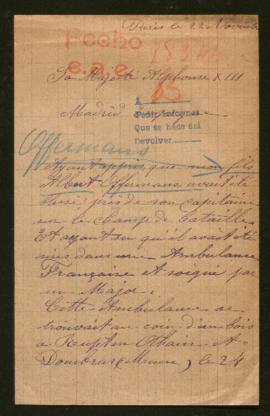 Paris le 22 Novembre
Fecho
e.a.e.
Sa Majesté Alphonse XIII
Madrid
A
Pedir informes
Que se hace dia
Devolver
Offermans
Ayant appris que mon fils
Albert Offermans avait été
tué, près de son capitaine
sur le champ de bataille
Et ayant su qu'il avait été
mis dans une Ambulance
Française et soigné par
un Major.
Cette Ambulance se
trouvait au coin d'un bois
à Rupt en Othain - et
Dombras (Meuse), le 24